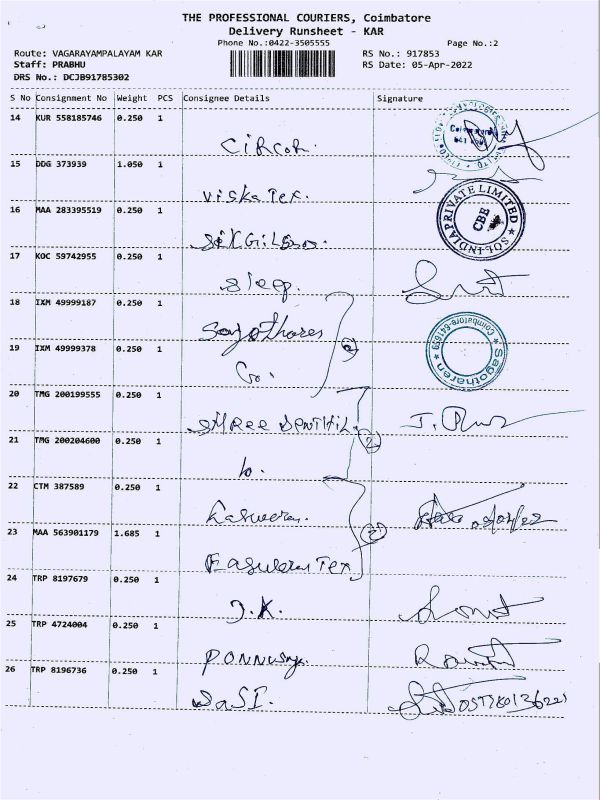 THE PROFESSIONAL COURIERS, Coimbatore
Delivery Runsheet - KAR
Phone No.:0422-3505555 Page No.:2
Route: VAGARAYAMPALAYAM KAR RS No.: 917853
Staff: PRABHU RS Date: 05-Apr-2022
DRS No.: DCJB91785302
S No Consignment No Weight PCS Consignee Details Signature
14 KUR 558185746 0.250 1
15 DDG 373939 1.050 1
viska Tex.
16 MAA 283395519 0.250 1
SQL INDIA PRIVATE LIMITED
CBE
17 KOC 59742955 0.250 1
18 IXM 49999187 0.250 1
Sagotharen
19 IXM 49999378 0.250 1
* Sagotharen * Coimbatore-641659
20 TMG 200199555 0.250 1
SHREE SENTHIL.
21 TMG 200204600 0.250 1
2
22 CTM 387589 0.250 1
23 MAA 563901179 1.685 1
2
Easwaran Tex
24 TRP 8197679 0.250 1
J.K.
25 TRP 4724004 0.250 1
26 TRP 8196736 0.250 1